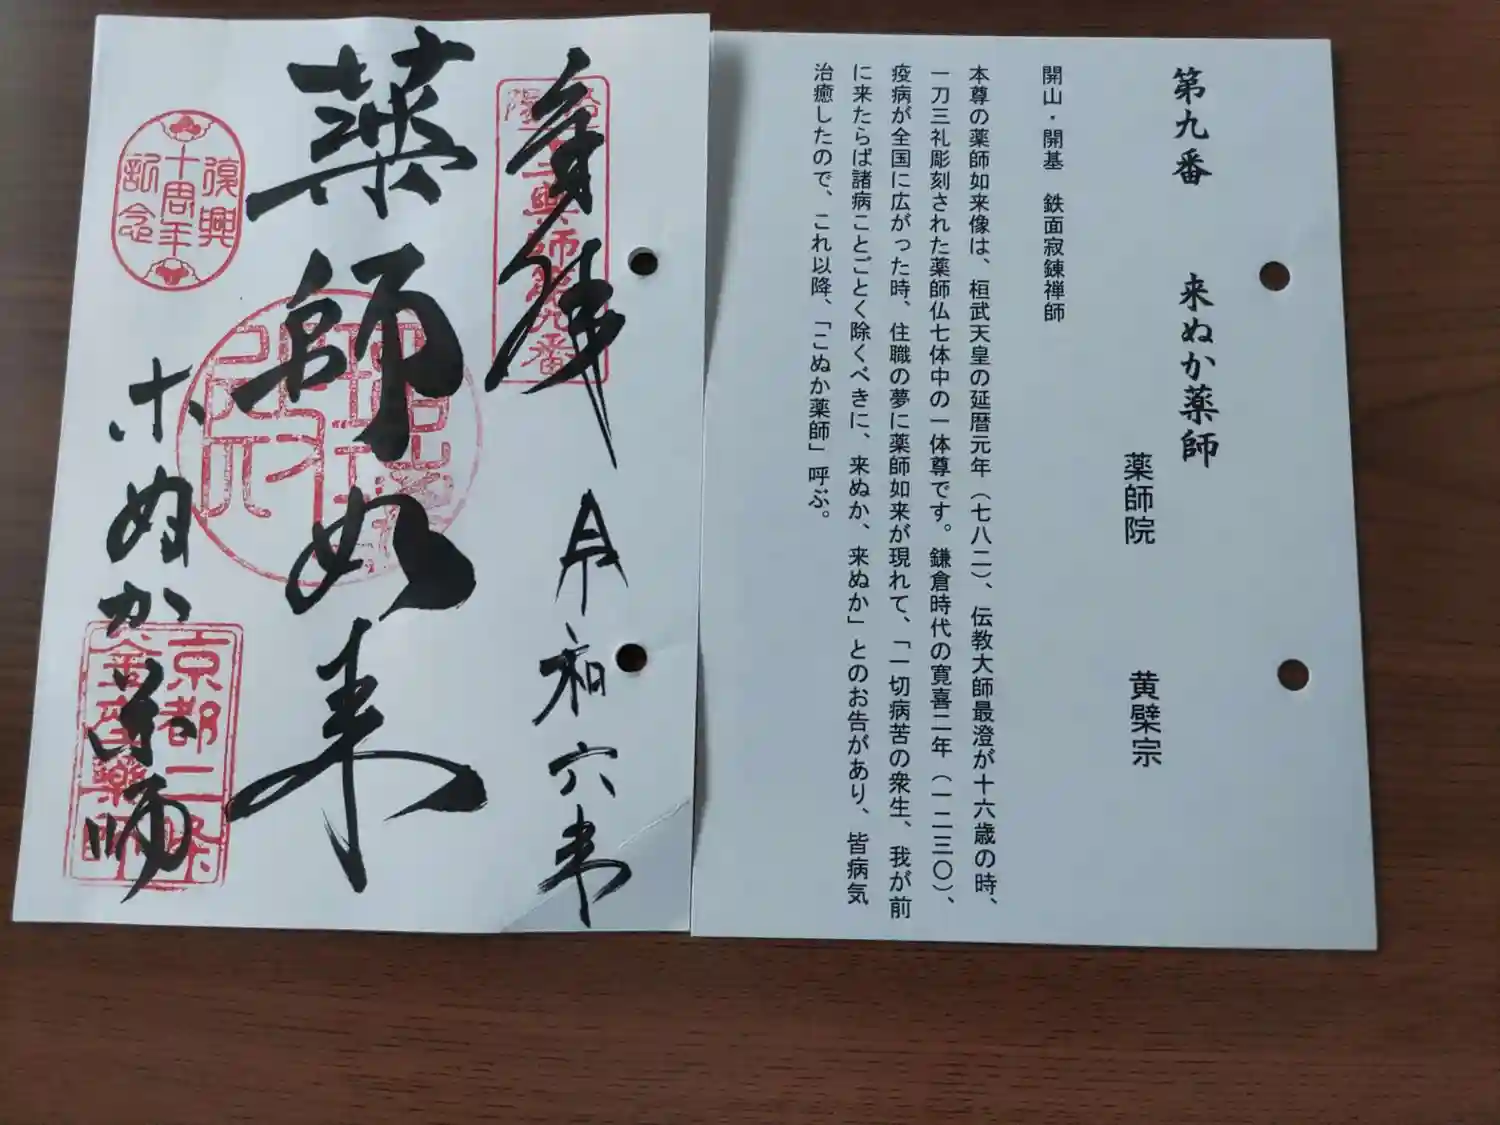 第九番　来ぬか薬師
薬師院　黄檗宗
開山・開基　鉄面寂錬禅師
本尊の薬師如来像は、桓武天皇の延暦元年（七八二）、伝教大師最澄が十六歳の時、
一刀三礼彫刻された薬師仏七体中の一体尊です。鎌倉時代の寛喜二年（一二三〇）、
疫病が全国に広がった時、住職の夢に薬師如来が現れて、「一切病苦の衆生、我が前
に来たらば諸病ことごとく除くべきに、来ぬか、来ぬか」とのお告があり、皆病気
治癒したので、これ以降、「こぬか薬師」呼ぶ。
奉拝　令和六年
薬師如来
こぬか薬師
復興
十周年
記念
京都二条